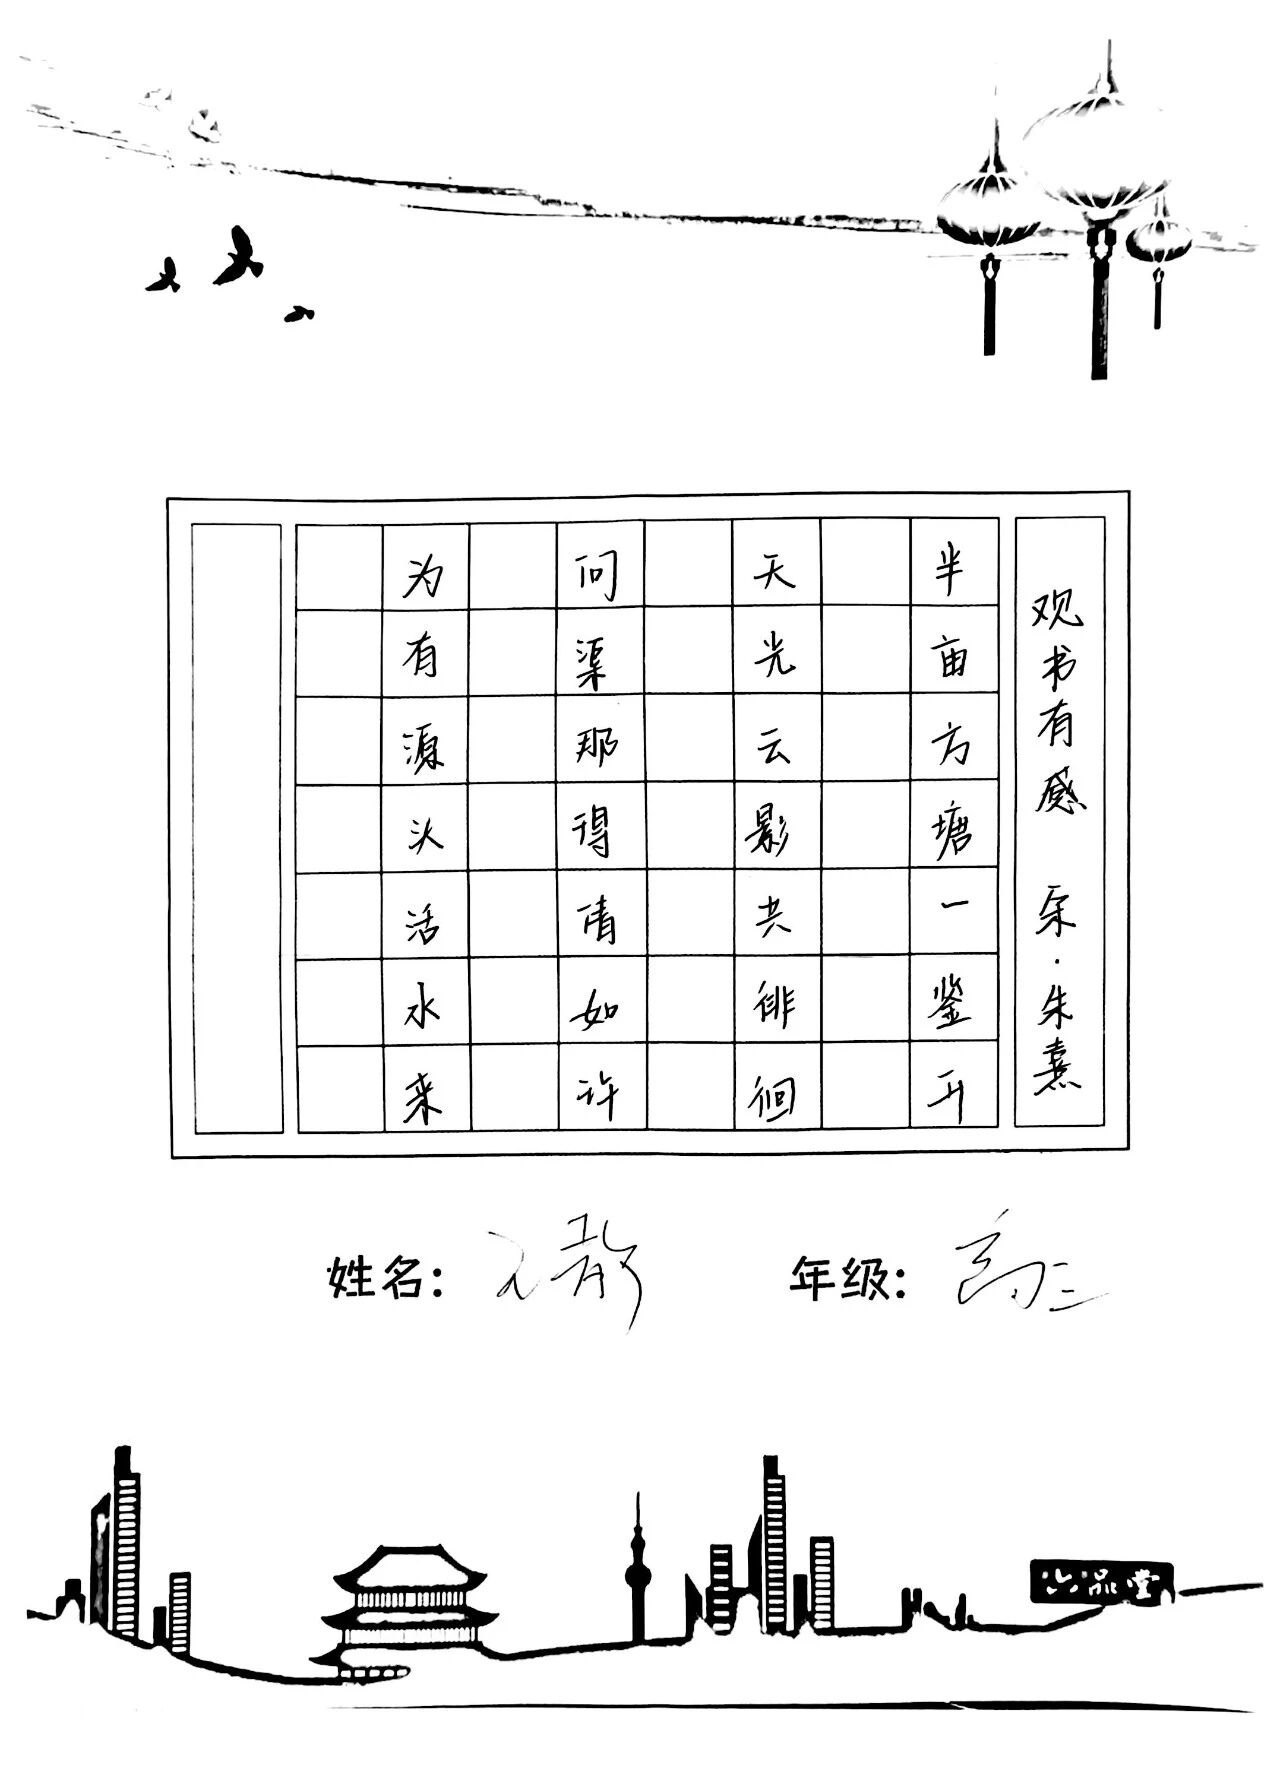 观书有感 宋·朱熹
半亩方塘一鉴开
天光云影共徘徊
问渠那得清如许
为有源头活水来
姓名：
年级：高二
品堂